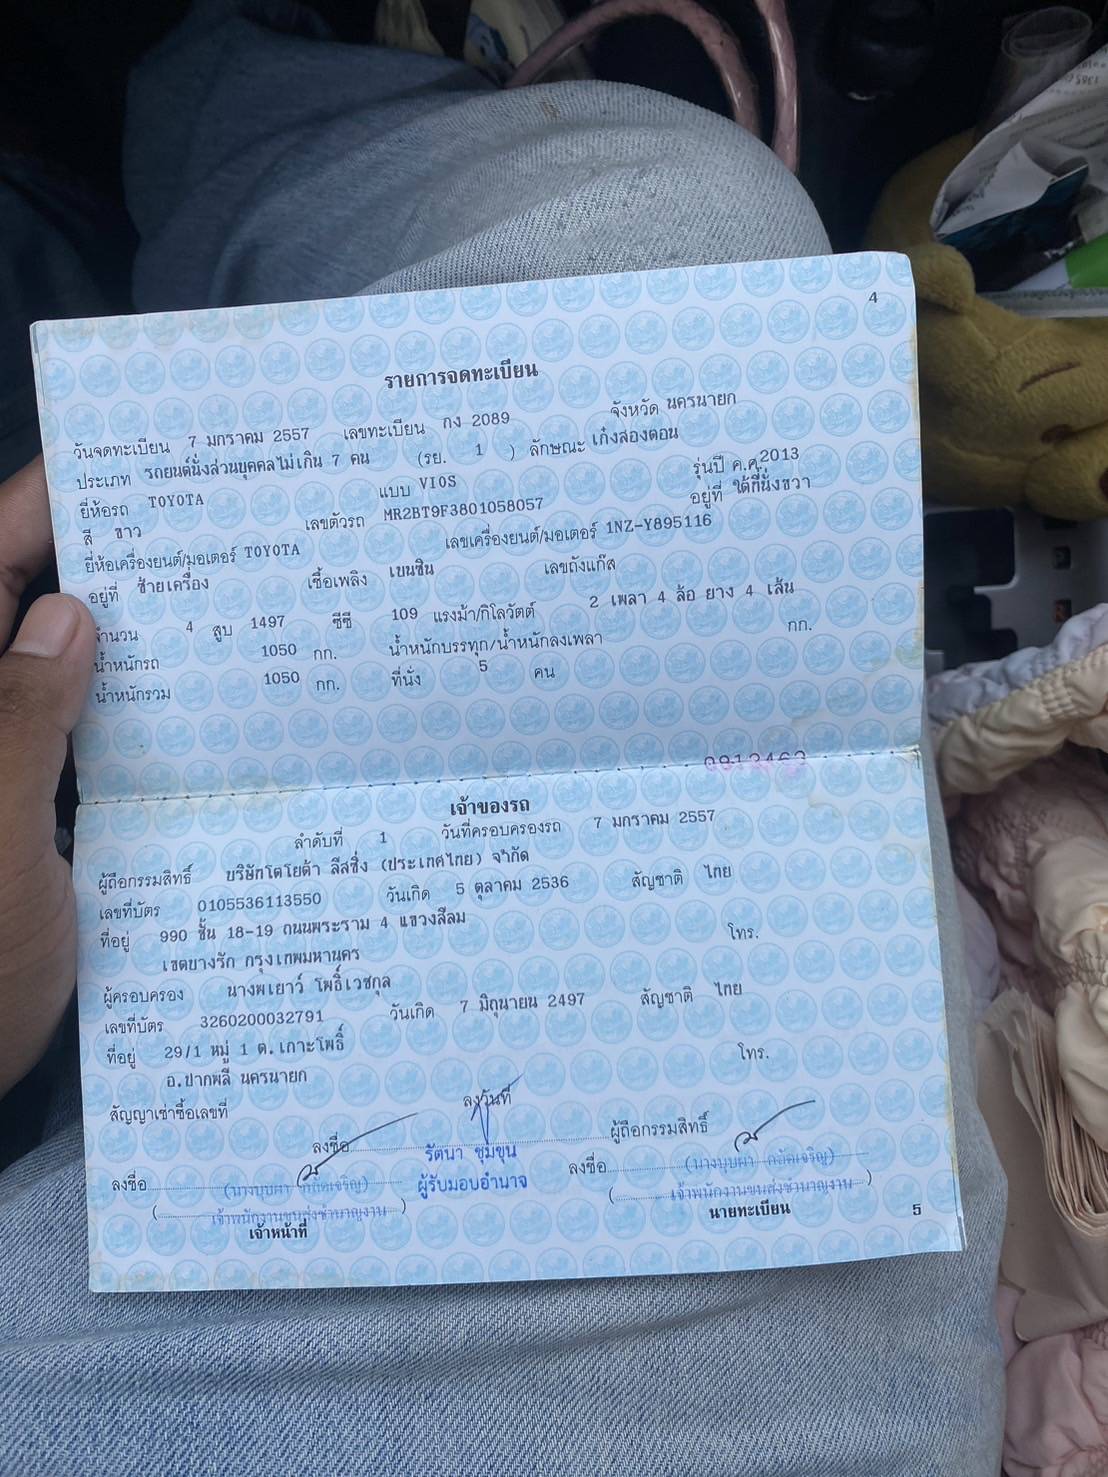 4
รายการจดทะเบียน
วันจดทะเบียน 7 มกราคม 2557 เลขทะเบียน กง 2089 จังหวัด นครนายก
ประเภท รถยนต์นั่งส่วนบุคคลไม่เกิน 7 คน (รย. 1 ) ลักษณะ เก๋งสองตอน
ยี่ห้อรถ TOYOTA แบบ VIOS รุ่นปี ค.ศ. 2013
สี ขาว เลขตัวรถ MR2BT9F3801058057 อยู่ที่ ใต้ที่นั่งขวา
ยี่ห้อเครื่องยนต์/มอเตอร์ TOYOTA เลขเครื่องยนต์/มอเตอร์ 1NZ-Y895116
อยู่ที่ ซ้ายเครื่อง เชื้อเพลิง เบนซิน เลขถังแก๊ส
จำนวน 4 สูบ 1497 ซีซี 109 แรงม้า/กิโลวัตต์ 2 เพลา 4 ล้อ ยาง 4 เส้น
น้ำหนักรถ 1050 กก. น้ำหนักบรรทุก/น้ำหนักลงเพลา กก.
น้ำหนักรวม 1050 กก. ที่นั่ง 5 คน
0912463
เจ้าของรถ
ลำดับที่ 1 วันที่ครอบครองรถ 7 มกราคม 2557
ผู้ถือกรรมสิทธิ์ บริษัทโตโยต้า ลีสซิ่ง (ประเทศไทย) จำกัด
เลขที่บัตร 0105536113550 วันเกิด 5 ตุลาคม 2536 สัญชาติ ไทย
ที่อยู่ 990 ชั้น 18-19 ถนนพระราม 4 แขวงสีลม โทร.
เขตบางรัก กรุงเทพมหานคร
ผู้ครอบครอง นางพเยาว์ โพธิ์เวชกุล
เลขที่บัตร 3260200032791 วันเกิด 7 มิถุนายน 2497 สัญชาติ ไทย
ที่อยู่ 29/1 หมู่ 1 ต.เกาะโพธิ์ โทร.
อ.ปากพลี นครนายก
สัญญาเช่าซื้อเลขที่ ลงวันที่
ลงชื่อ ผู้ถือกรรมสิทธิ์
รัตนา ชุ่มขุน
ลงชื่อ (นางบุบผา) ผู้รับมอบอำนาจ ลงชื่อ (นางบุบผา)
( เจ้าพนักงานขนส่งชำนาญงาน ) ( เจ้าพนักงานขนส่งชำนาญงาน )
เจ้าหน้าที่ นายทะเบียน 5